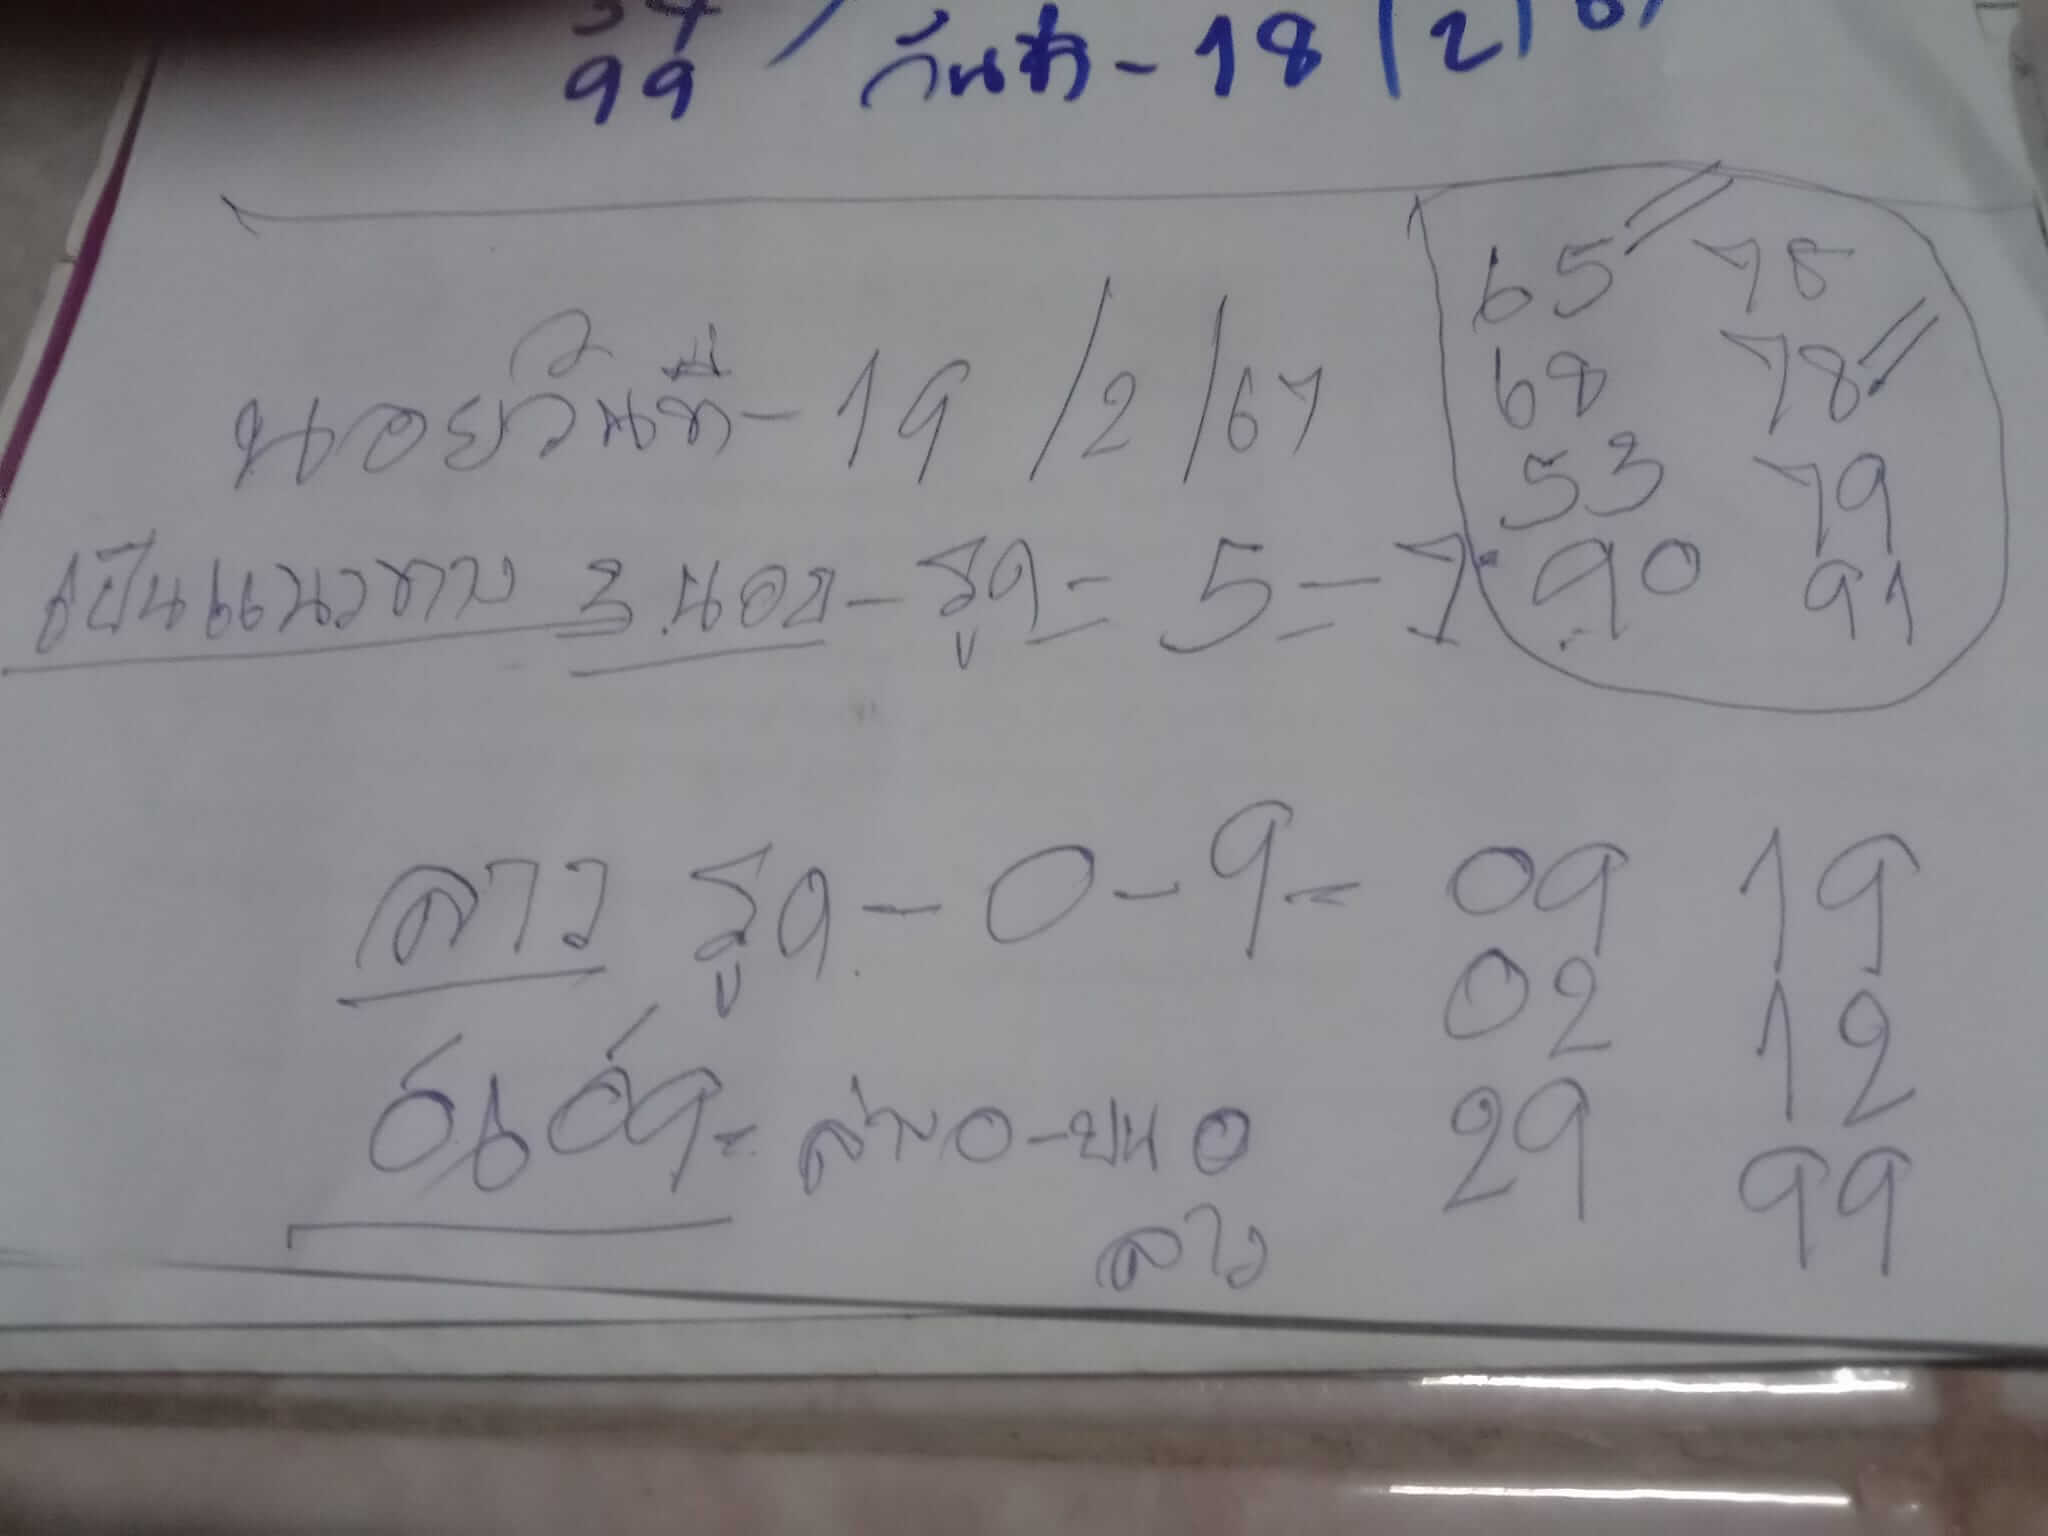 99 วันที่ - 18/2/
นอยวันที่ - 19/2/67
65 78
68 78
53 79
90 91
เป็นแนวทาง 3.นอย - รูด = 5 = 7
ลาว รูด - 0 - 9 = 09 19
02 12
29 99
= ล่าง 0 - บน 0
ลาว